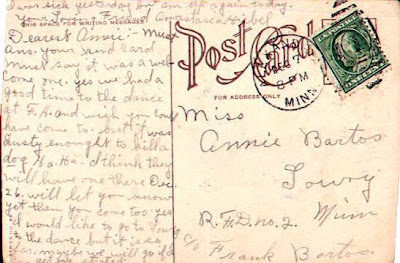 I was sick yesterday but am up again today.
Your Loving Friend Anastasia
THIS SPACE FOR WRITING MESSAGES
Dearest Annie:- Must
ans. your kind card
must say it was a wel-
come one. yes we had a
good time to the dance
at F.H. and wish you could
have come to. but it was
dusty enought to kill a
dog Ha. Ha. I think they
will have one there Dec.
26. will let you know
yet then you come too yes
I would like to go to Lowry
to the dance but it is so
far. maybe we will go if
get started
Post Card
FOR ADDRESS ONLY
8 PM
MINN
Miss
Annie Bartos
Lowry
R.F.D. no. 2. Minn
c/o Frank Bartos.